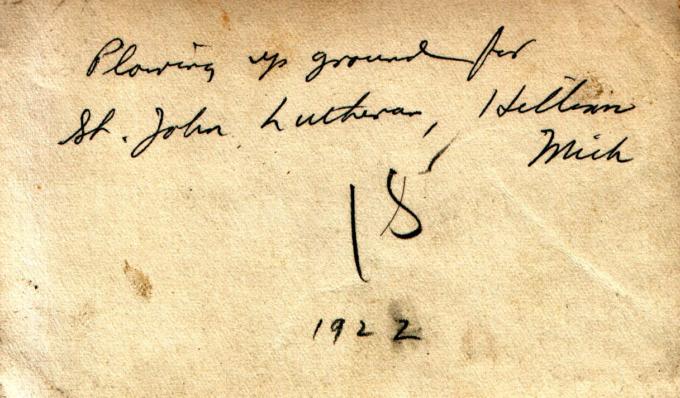 Plowing up ground for
St. John Lutheran, Hillman
Mich
18
1922